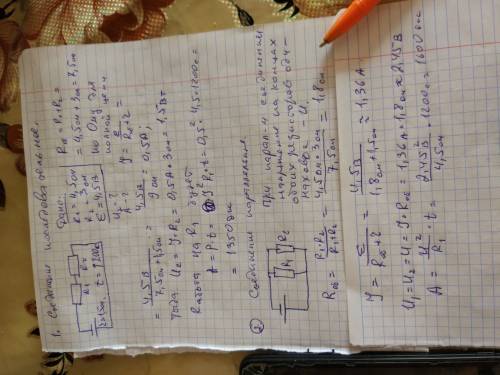 1. Соединение последовательное.
Дано:
R₁ = 4,5 ом
R₂ = 3 ом
ε = 4,5 В
U₂ - ?
A - ?
R₁ R₂
r = 1,5 ом, t = 1200 с
Rоб = R₁ + R₂ =
= 4,5 ом + 3 ом = 7,5 ом
по Ому для
полной цепи
У = ε / (Rоб + r) =
= 4,5 В / (7,5 ом + 1,5 ом) = 4,5 В / 9 ом = 0,5 А;
Тогда U₂ = У · R₂ = 0,5 А · 3 ом = 1,5 Вт
Работа на R₁ будет
A = P₁ t = У² R₁ · t = 0,5² · 4,5 · 1200 с =
= 1350 дж
② Соединение параллельное
R₁ R₂
При парал-м соединении
напряжение на концах
обоих резисторов оди-
наковое - U.
Rоб = R₁ · R₂ / (R₁ + R₂) = 4,5 ом · 3 ом / 7,5 ом = 1,8 ом
У = ε / (Rоб + r) = 4,5 В / (1,8 ом + 1,5 ом) = 1,36 А
U₁ = U₂ = U = У · Rоб = 1,36 А · 1,8 ом = 2,45 В
A = U² / R₁ · t = 2,45² В / 4,5 ом · 1200 с = 1600 дж